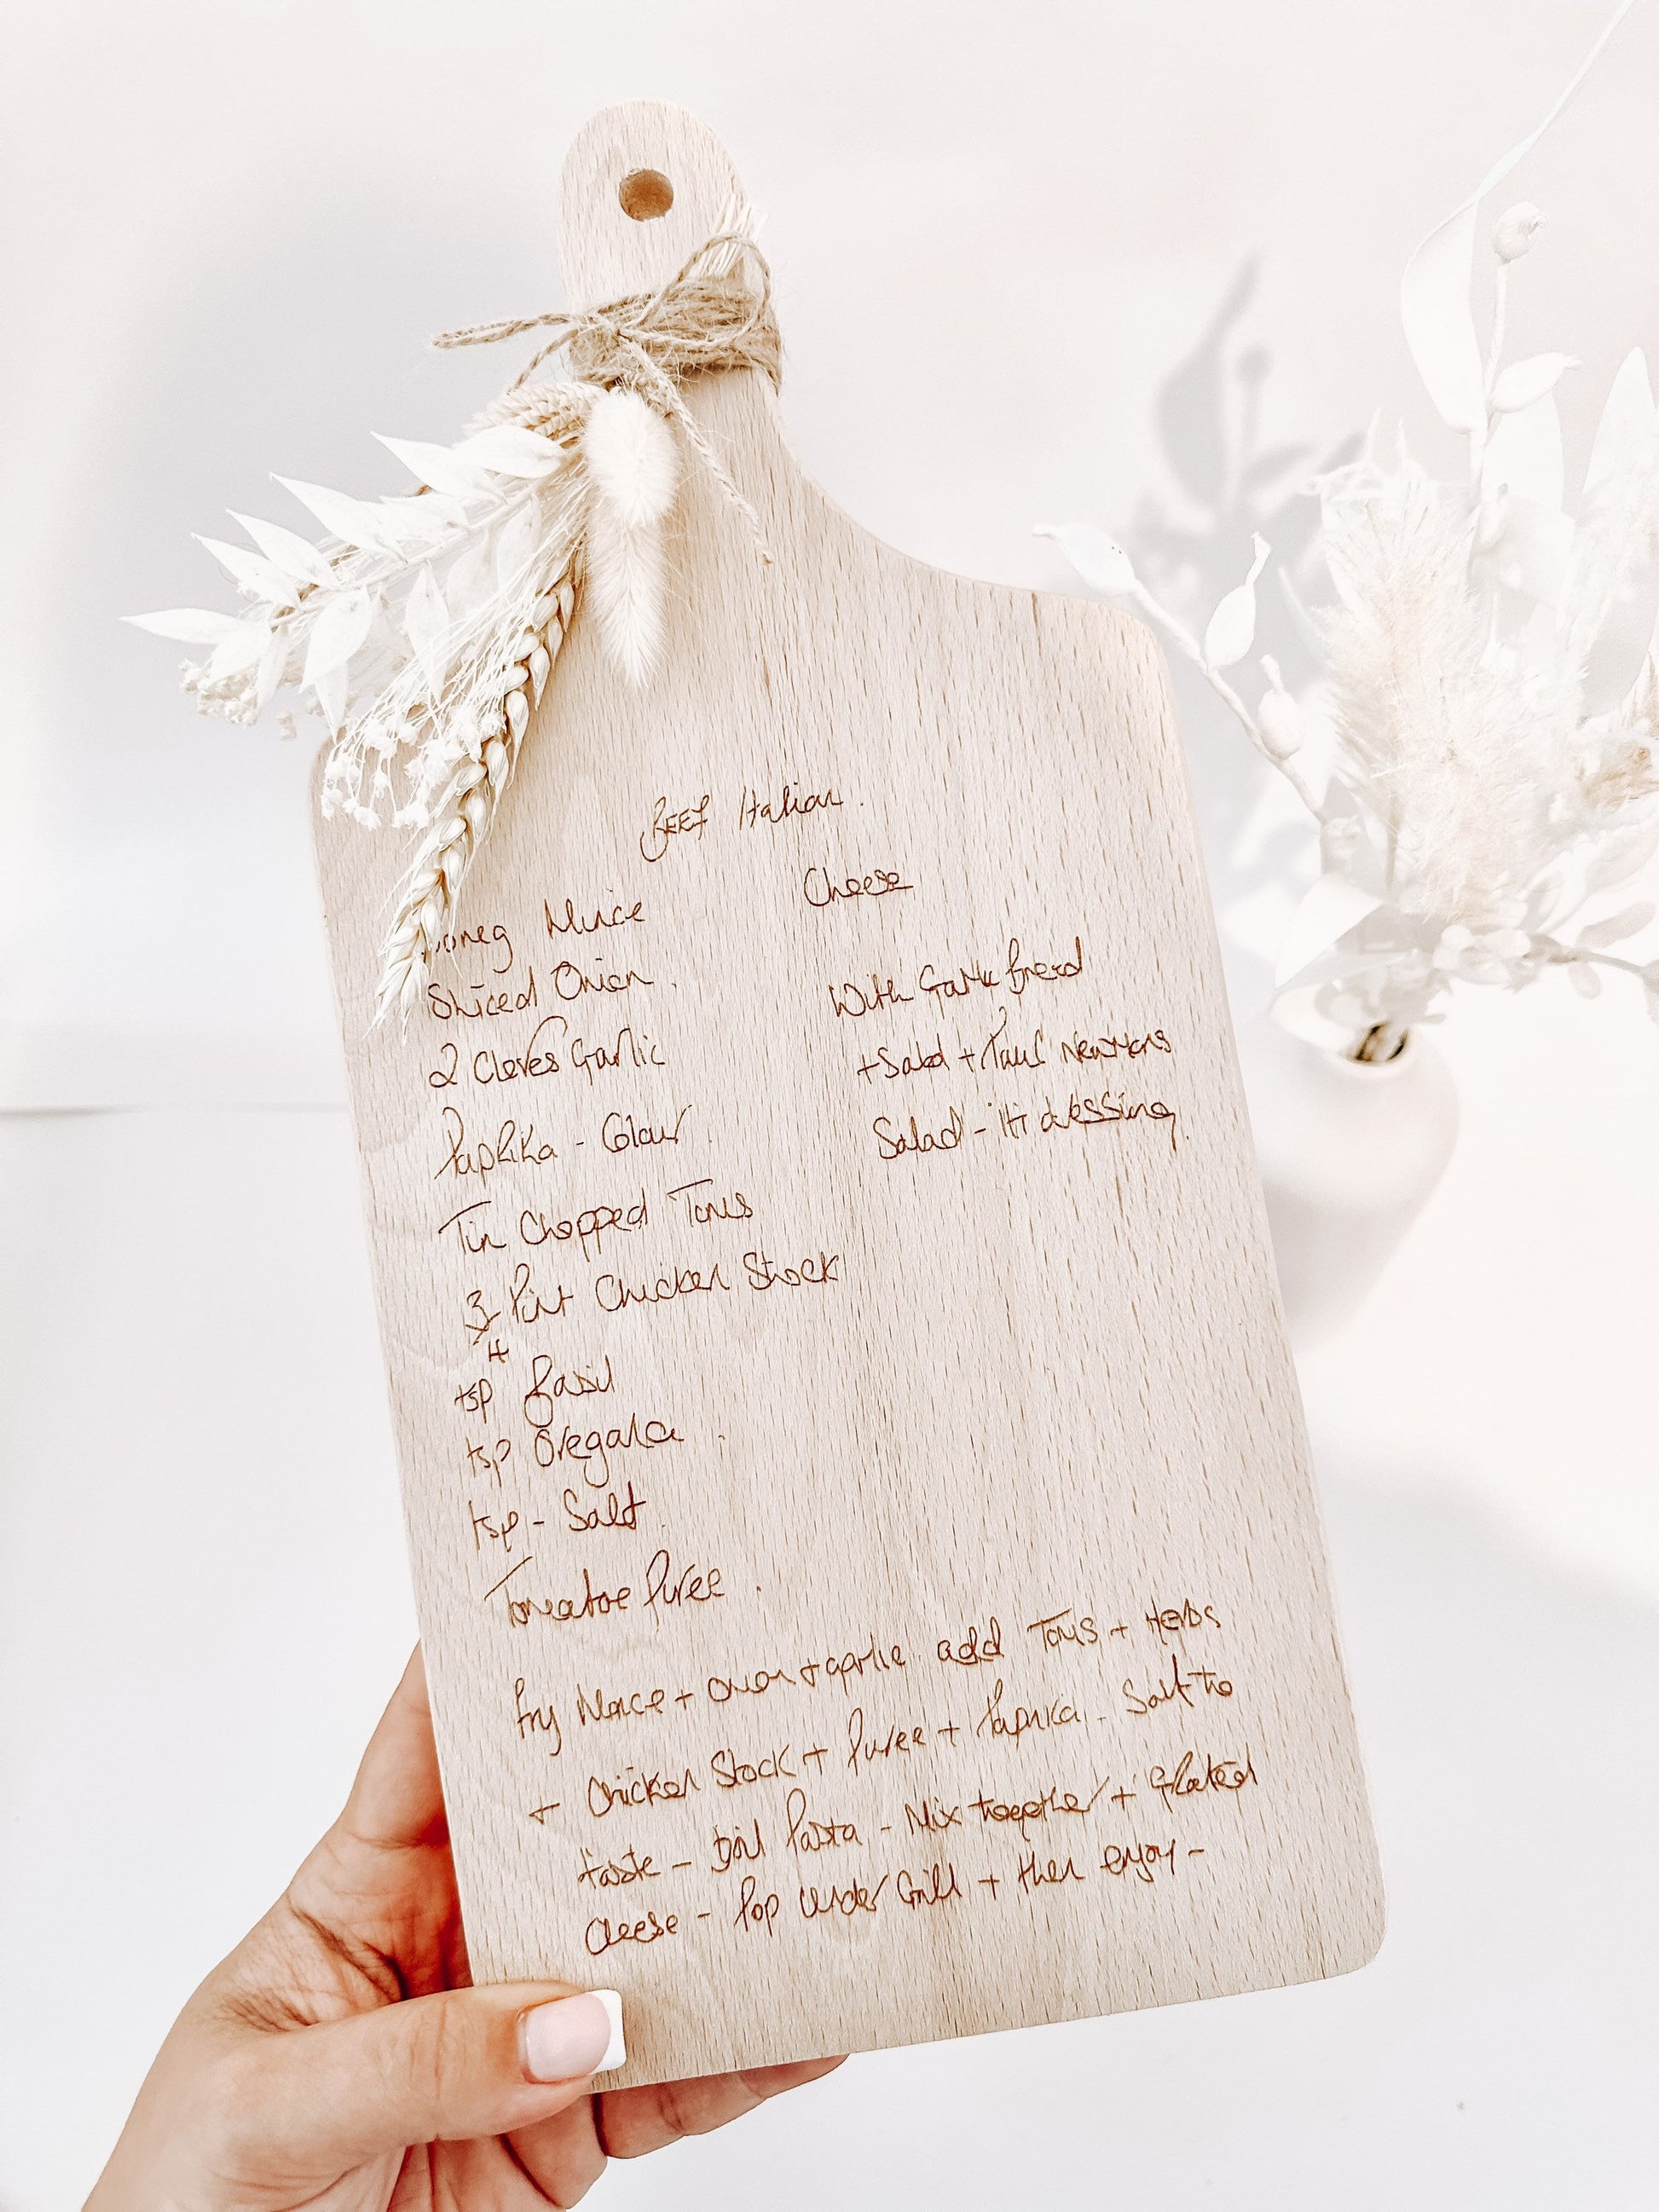 BEEF Italian.
Mince
Sliced Onion.
2 Cloves Garlic
Paprika - Colour.
Tin Chopped Toms
3/4 Pint Chicken Stock
tsp Basil
tsp Oregano.
tsp - Salt.
Tomatoe Puree.
Cheese
With Garlic Bread
+ Salad + Paul Newmans
Salad - dressing.
Fry Mince + onion + garlic. add Toms + Herbs
+ Chicken Stock + Puree + Paprika. Salt to
taste - Boil Pasta - Mix together + Grated
Cheese - Pop Under Grill + then enjoy -